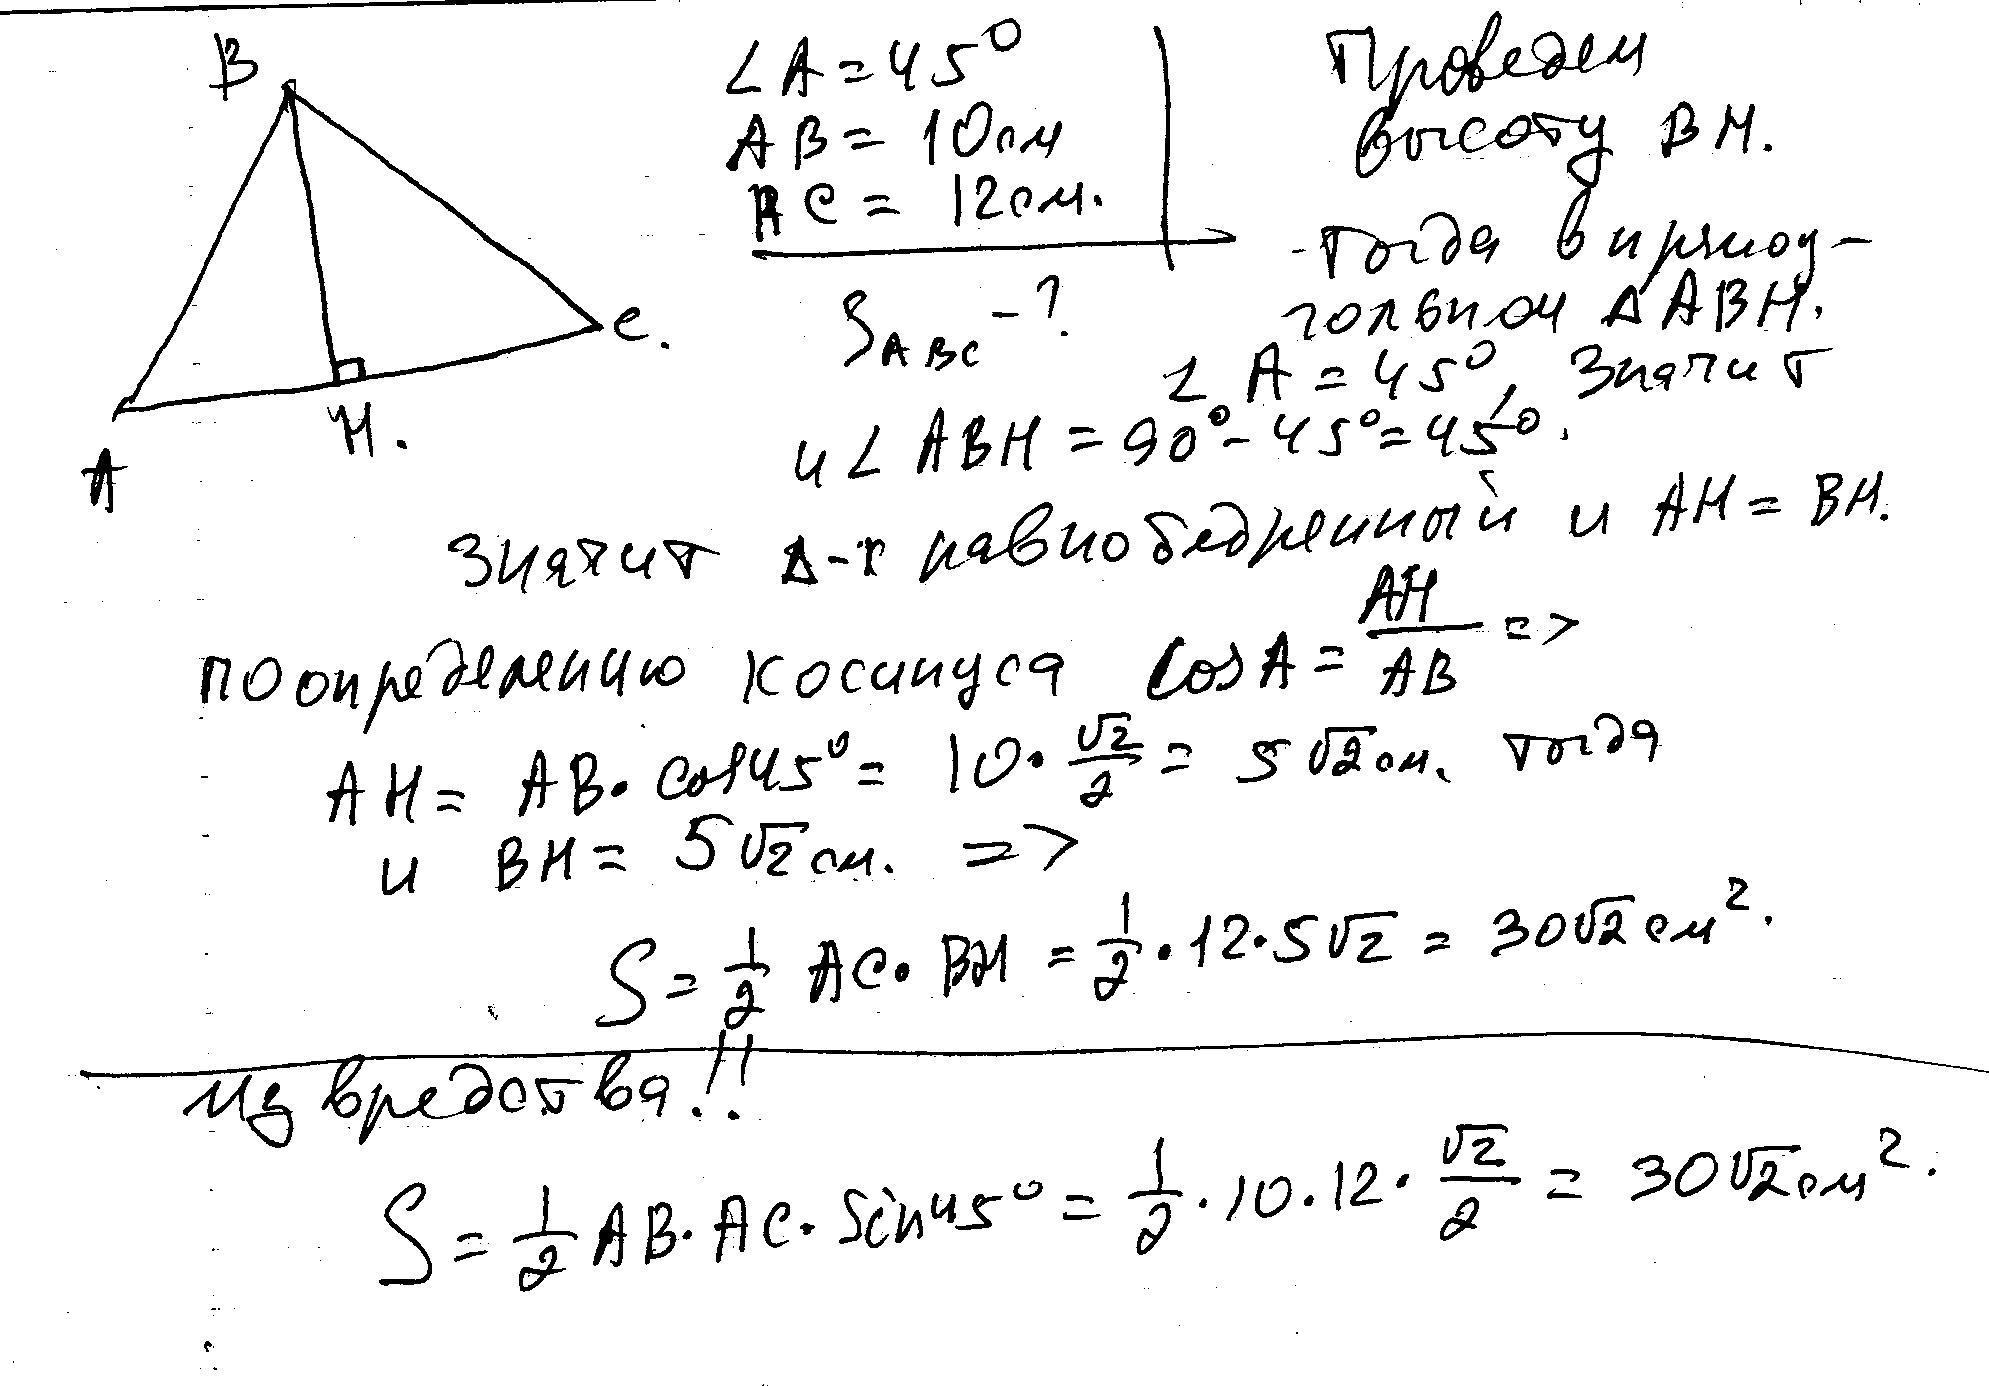 B
C.
H.
A
∠A = 45°
AB = 10см
AC = 12см.
S_ABC - ?
Проведем
высоту BH.
Тогда в прямоу-
гольном ΔABH.
∠A = 45°, значит
и ∠ABH = 90° - 45° = 45°.
Значит Δ-к равнобедренный и AH = BH.
По определению косинуса cosA = AH/AB =>
AH = AB · cos45° = 10 · √2/2 = 5√2 см. тогда
и BH = 5√2 см. =>
S = 1/2 AC · BH = 1/2 · 12 · 5√2 = 30√2 см².
Из вредства!!
S = 1/2 AB · AC · Sin45° = 1/2 · 10 · 12 · √2/2 = 30√2 см².